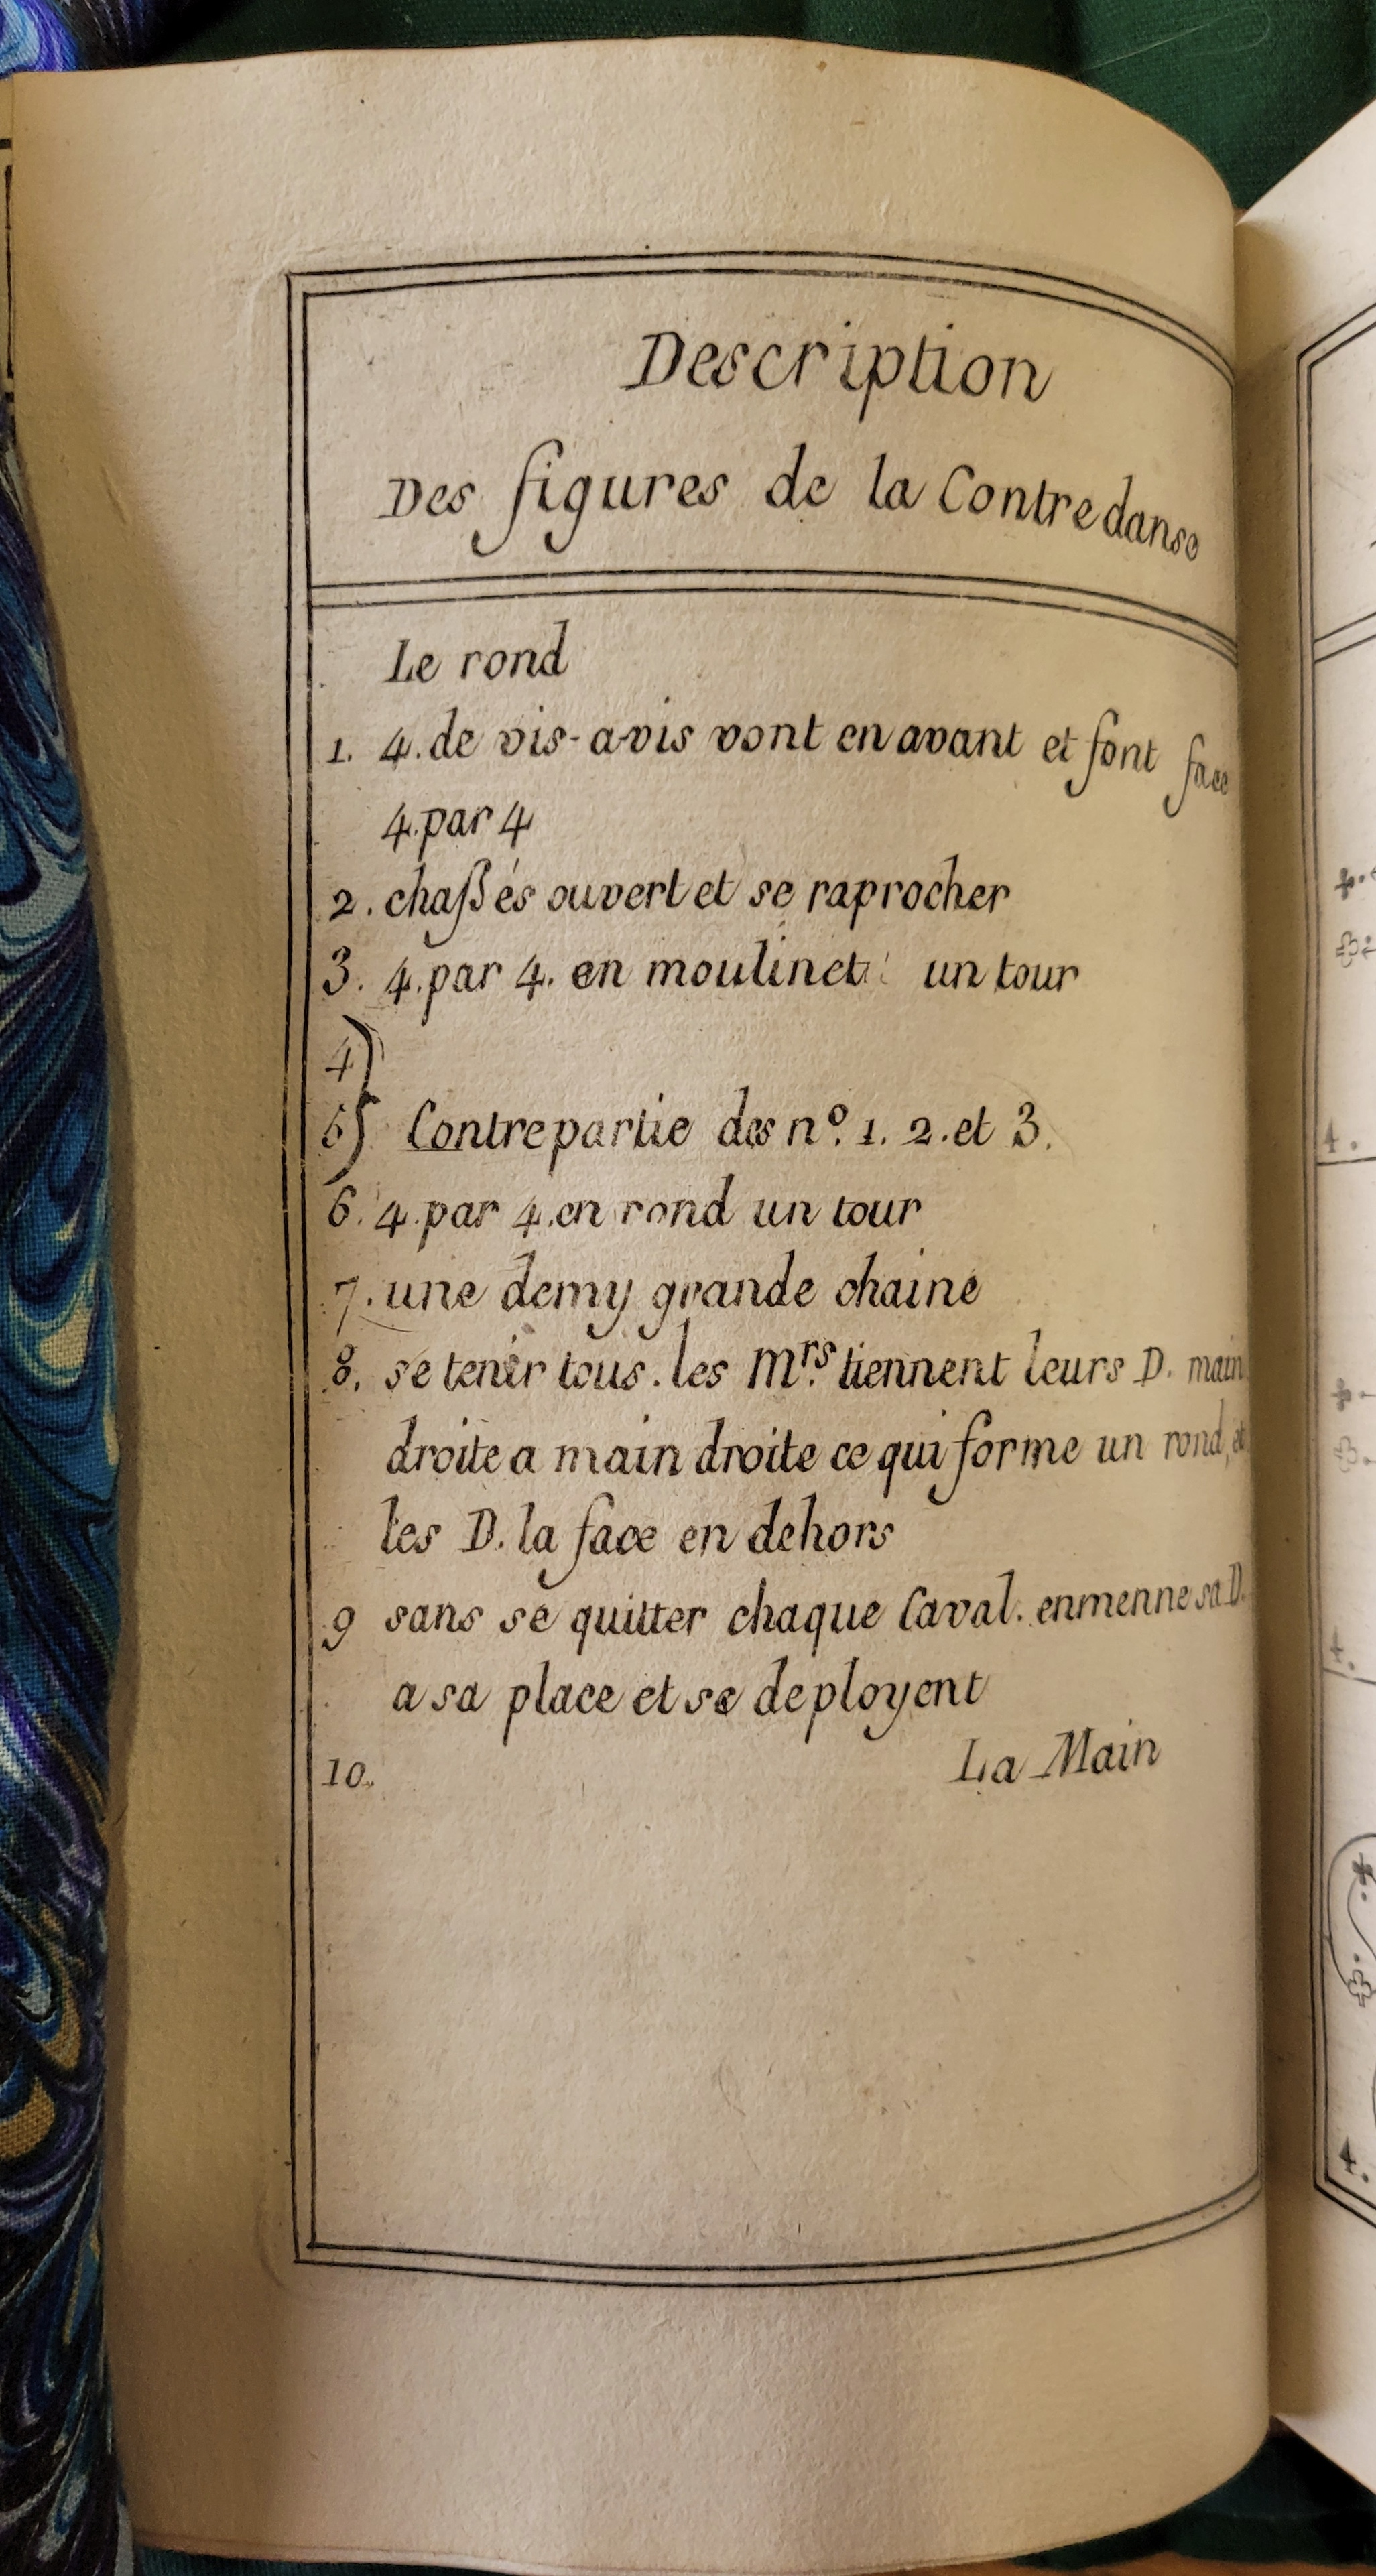 Description
Des figures de la Contredanse
Le rond
1. 4. de vis-a-vis vont en avant et font face
4. par 4
2. chaßés ouvert et se raprocher
3. 4. par 4. en moulinet un tour
4)
5) Contrepartie des nº. 1. 2. et 3.
6. 4. par 4. en rond un tour
7. une demy grande chaine
8. se tenir tous. les Mrs. tiennent leurs D. main
droite a main droite ce qui forme un rond, et
les D. la face en dehors
9 sans se quitter chaque Caval. enmenne sa D.
a sa place et se deployent
10. La Main
4.
4.
4.